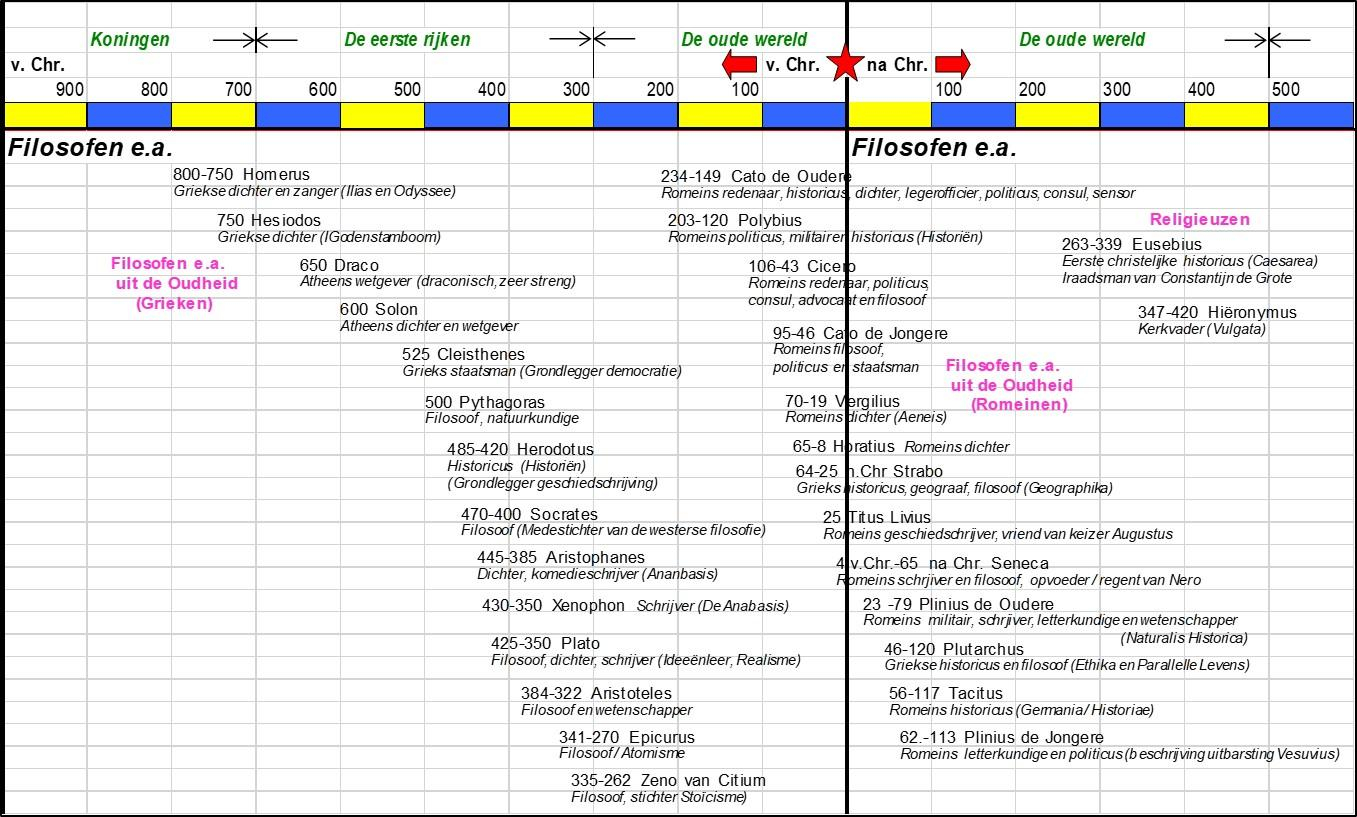 Koningen De eerste rijken De oude wereld De oude wereld
v. Chr. v. Chr. na Chr.
900 800 700 600 500 400 300 200 100 100 200 300 400 500
Filosofen e.a. Filosofen e.a.
800-750 Homerus
Griekse dichter en zanger (Ilias en Odyssee)
750 Hesiodos
Griekse dichter (IGodenstamboom)
Filosofen e.a.
uit de Oudheid
(Grieken)
650 Draco
Atheens wetgever (draconisch, zeer streng)
600 Solon
Atheens dichter en wetgever
525 Cleisthenes
Grieks staatsman (Grondlegger democratie)
500 Pythagoras
Filosoof, natuurkundige
485-420 Herodotus
Historicus (Historiën)
(Grondlegger geschiedschrijving)
470-400 Socrates
Filosoof (Medestichter van de westerse filosofie)
445-385 Aristophanes
Dichter, komedieschrijver (Ananbasis)
430-350 Xenophon Schrijver (De Anabasis)
425-350 Plato
Filosoof, dichter, schrijver (Ideeënleer, Realisme)
384-322 Aristoteles
Filosoof en wetenschapper
341-270 Epicurus
Filosoof / Atomisme
335-262 Zeno van Citium
Filosoof, stichter Stoïcisme)
234-149 Cato de Oudere
Romeins redenaar, historicus, dichter, legerofficier, politicus, consul, sensor
203-120 Polybius
Romeins politicus, militair en historicus (Historiën)
106-43 Cicero
Romeins redenaar, politicus,
consul, advocaat en filosoof
95-46 Cato de Jongere
Romeins filosoof,
politicus en staatsman
70-19 Vergilius
Romeins dichter (Aeneis)
65-8 Horatius Romeins dichter
64-25 n.Chr Strabo
Grieks historicus, geograaf, filosoof (Geographika)
25 Titus Livius
Romeins geschiedschrijver, vriend van keizer Augustus
4 v.Chr.-65 na Chr. Seneca
Romeins schrijver en filosoof, opvoeder / regent van Nero
23 -79 Plinius de Oudere
Romeins militair, schrjiver, letterkundige en wetenschapper
(Naturalis Historica)
46-120 Plutarchus
Griekse historicus en filosoof (Ethika en Parallelle Levens)
56-117 Tacitus
Romeins historicus (Germania / Historiae)
62.-113 Plinius de Jongere
Romeins letterkundige en politicus (beschrijving uitbarsting Vesuvius)
Religieuzen
263-339 Eusebius
Eerste christelijke historicus (Caesarea)
Iraadsman van Constantijn de Grote
347-420 Hiëronymus
Kerkvader (Vulgata)
Filosofen e.a.
uit de Oudheid
(Romeinen)